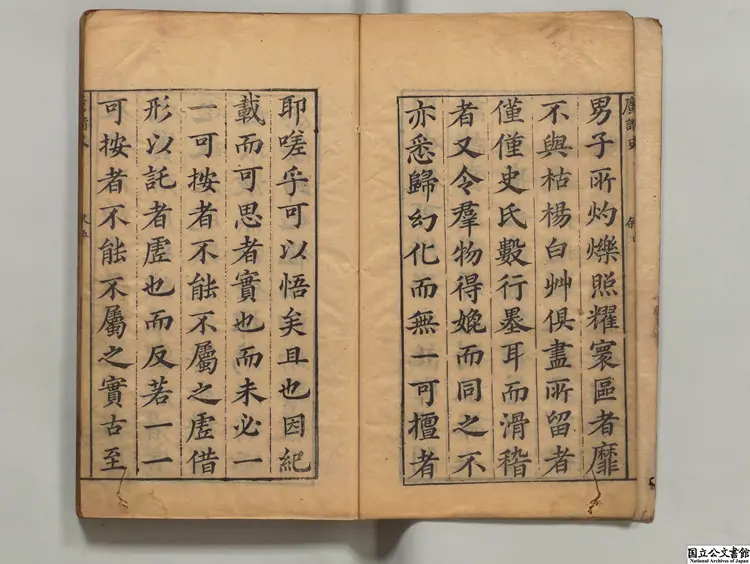 廣諧史
男子所灼爍照耀寰區者靡
不與枯楊白艸俱盡所留者
僅僅史氏數行墨耳而滑稽
者又令羣物得媲而同之不
亦悉歸幻化而無一可擅者
耶嗟乎可以悟矣且也因紀
載而可思者實也而未必一
一可按者不能不屬之虛借
形以託者虛也而反若一一
可按者不能不屬之實古至
国立公文書館
National Archives of Japan